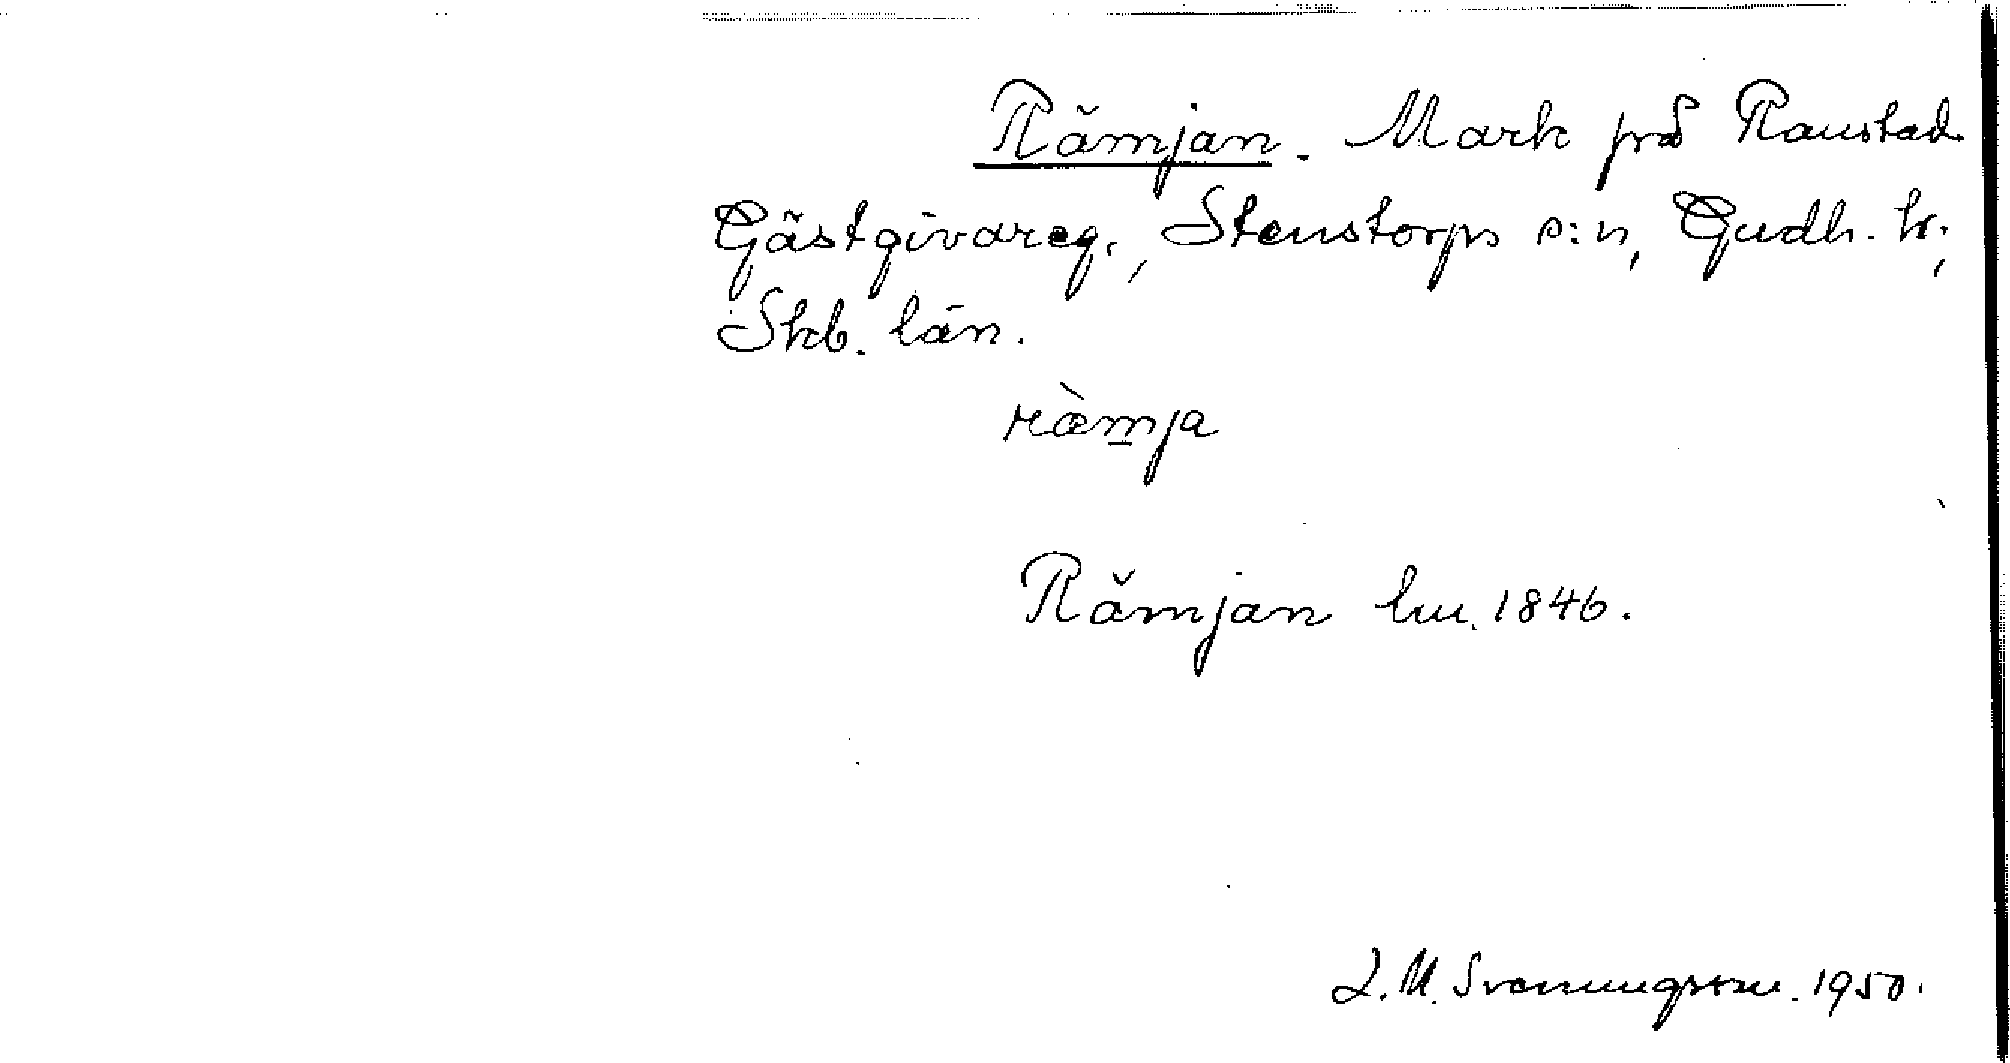 Rämjan. Mark på Ranstad
Gästgivareg., Stenstorps s:n, Gudh. hr.,
Skb. län.
ræ̀m̲ja
Rämjan lm. 1846.
L. M. Svenungsson. 1950.